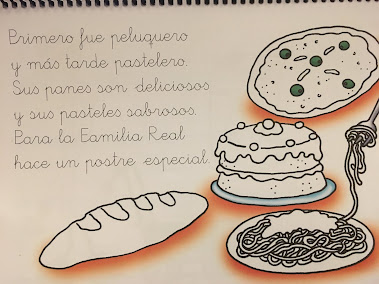 Primero fue peluquero
y más tarde pastelero.
Sus panes son deliciosos
y sus pasteles sabrosos.
Para la Familia Real
hace un postre especial.